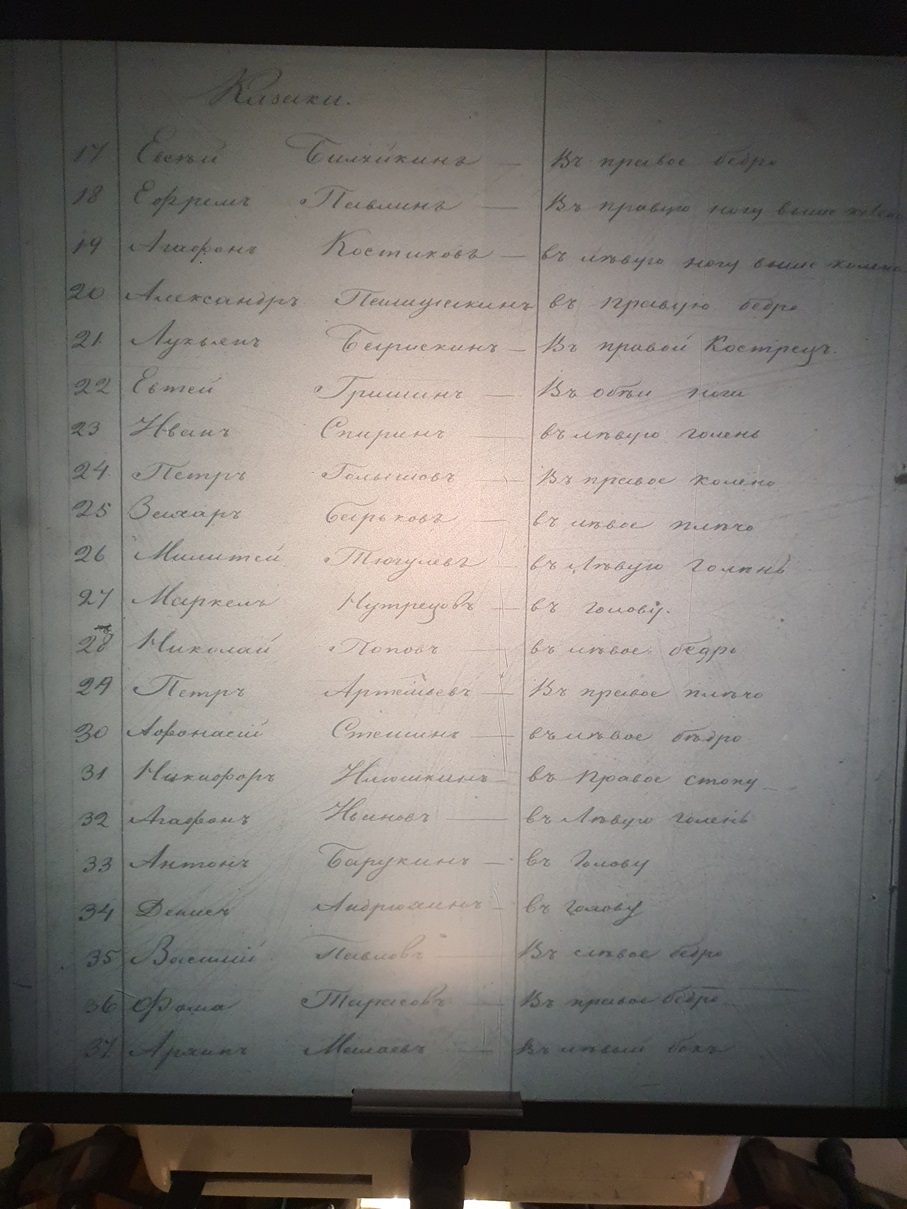 Казаки.
17 Евсѣй Билчикинъ — Въ правое бедро
18 Ефремъ Павлинъ — Въ правую ногу выше колена
19 Агафонъ Костиковъ — въ лѣвую ногу выше колена
20 Александръ въ правую бедро
21 Лукьянъ — Въ правой Кострецъ.
22 Евтей Гришинъ — Въ обѣи ноги
23 Иванъ Спиринъ — въ лѣвую голень
24 Петръ Голышовъ — Въ правое колено
25 Захаръ — въ лѣвое плѣчо
26 Милитей Тюгулевъ — въ Лѣвую Голѣнь
27 Маркелъ Нутрецовъ — въ голову.
28 Николай Поповъ — въ лѣвое бедро
29 Петръ Артемьевъ — Въ правое плѣчо
30 Афонасий Стешинъ — въ лѣвое бѣдро
31 Никифоръ Илюшкинъ — въ Правое стопу
32 Агафонъ Ивановъ — въ Лѣвую голень
33 Антонъ Барукинъ — въ Голову
34 Денисъ Андрюхинъ — въ Голову
35 Василий Павловъ — Въ лѣвое бедро
36 Фома Тарасовъ — Въ правое бедро
37 Архипъ Малаевъ — Въ лѣвый бокъ